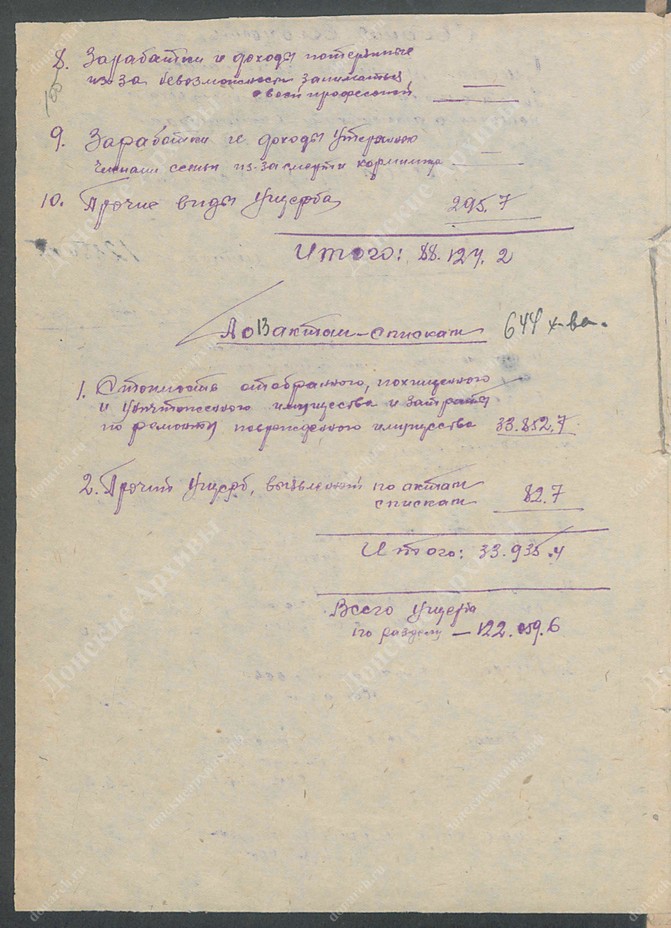 8. Заработки и доходы потерянные
из за невозможности заниматься
своей профессией —
9. Заработки и доходы утерянные
членами семьи из-за смерти кормильца —
10. Прочие виды ущерба 295.7
Итого: 88.124.2
По 13 актам-спискам 644 х-ва.
1. Стоимость отобранного, похищенного
и уничтоженного имущества и затраты
по ремонту поврежденного имущества 33.852.7
2. Прочий ущерб, выявленный по актам
спискам 82.7
Итого: 33.935.4
Всего ущерба
по разделу — 122.059.6
Донские Архивы
donarch.ru